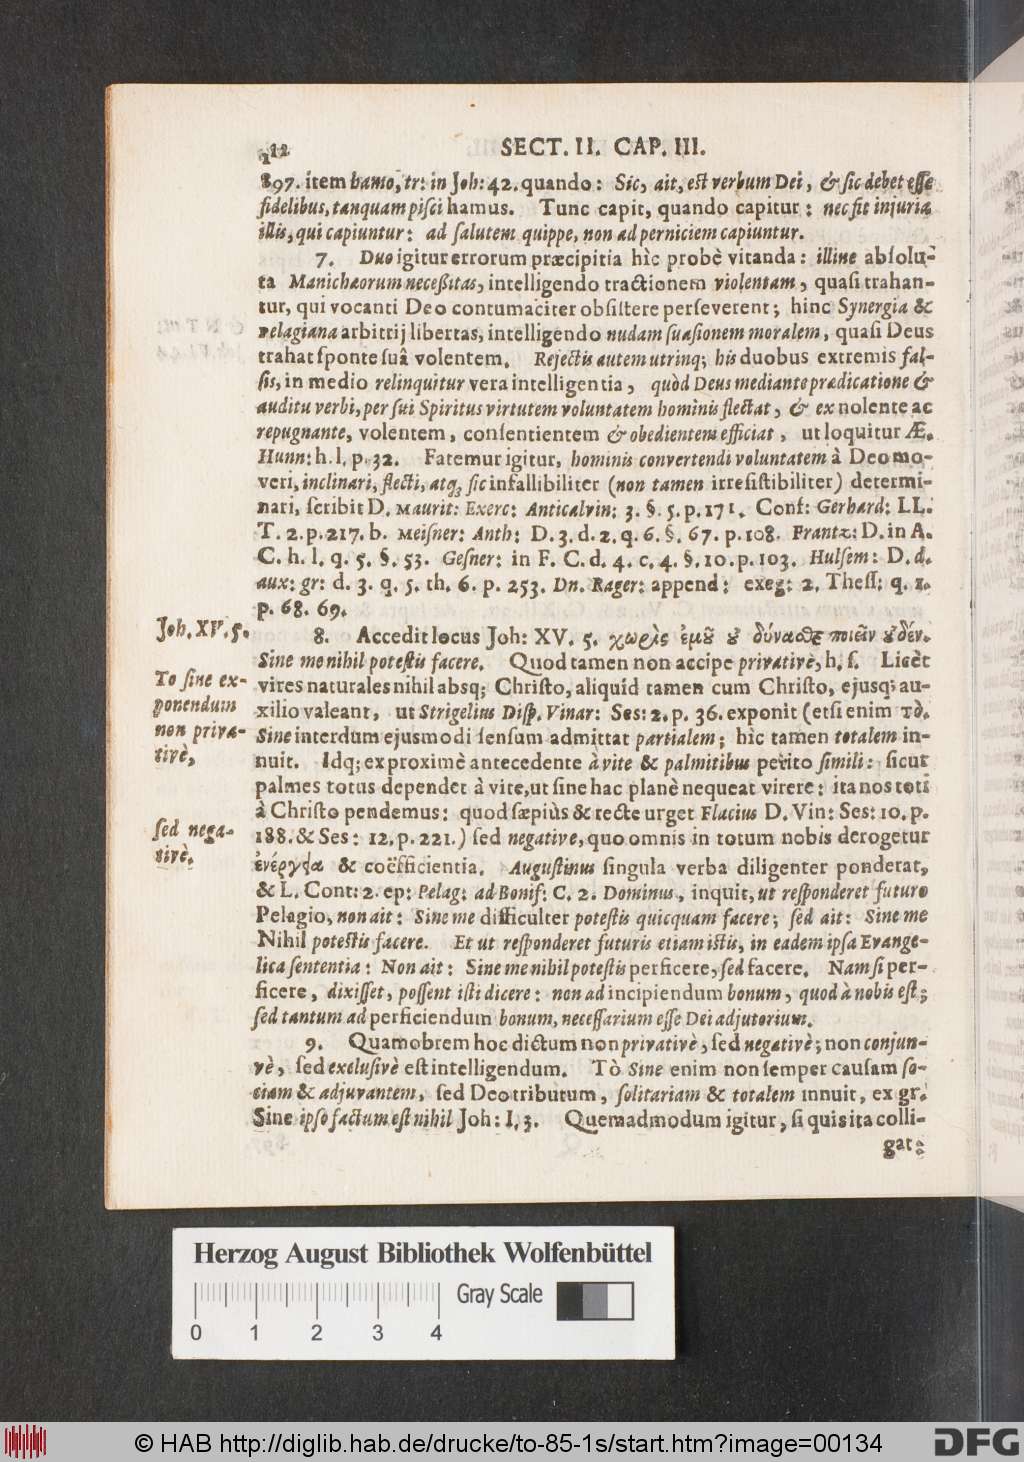 122 SECT. II. CAP. III.
897. item hamo, tr: in Joh: 42. quando: Sic, ait, est verbum Dei, & sic debet esse
fidelibus, tanquam pisci hamus. Tunc capit, quando capitur: nec fit injuria
illis, qui capiuntur: ad salutem quippe, non ad perniciem capiuntur.
7. Duo igitur errorum præcipitia hìc probè vitanda: illinc absolu-
ta Manichæorum necessitas, intelligendo tractionem violentam, quasi trahan-
tur, qui vocanti Deo contumaciter obsistere perseverent; hinc Synergia &
Pelagiana arbitrij libertas, intelligendo nudam suasionem moralem, quasi Deus
trahat sponte suâ volentem. Rejectis autem utrinq; his duobus extremis fal-
sis, in medio relinquitur vera intelligentia, quòd Deus mediante prædicatione &
auditu verbi, per sui Spiritus virtutem voluntatem hominis flectat, & ex nolente ac
repugnante, volentem, consentientem & obedientem efficiat, ut loquitur Æ.
Hunn: h. l. p. 32. Fatemur igitur, hominis convertendi voluntatem à Deo mo-
veri, inclinari, flecti, atq; sic infallibiliter (non tamen irresistibiliter) determi-
nari, scribit D. Maurit: Exerc: Anticalvin: 3. §. 5. p. 171. Conf: Gerhard: LL.
T. 2. p. 217. b. Meisner: Anth: D. 3. d. 2. q. 6. §. 67. p. 108. Frantz: D. in A.
C. h. l. q. 5. §. 53. Gesner: in F. C. d. 4. c. 4. §. 10. p. 103. Hulsem: D. d.
aux: gr: d. 3. q. 5. th. 6. p. 253. Dn. Rager: append: exeg: 2. Thess: q. 1.
p. 68. 69.
Joh. XV. 5.
8. Accedit locus Joh: XV. 5. χωρὶς ἐμοῦ οὐ δύνασθε ποιεῖν οὐδέν.
Sine me nihil potestis facere. Quod tamen non accipe privativè, h. s. Licèt
To sine ex-
ponendum
non priva-
tivè,
vires naturales nihil absq; Christo, aliquid tamen cum Christo, ejusq; au-
xilio valeant, ut Strigelius Disp. Vinar: Ses: 2. p. 36. exponit (etsi enim τὸ.
Sine interdum ejusmodi sensum admittat partialem; hìc tamen totalem in-
nuit. Idq; ex proximè antecedente à vite & palmitibus petito simili: sicut
palmes totus dependet à vite, ut sine hac planè nequeat virere: ita nos toti
à Christo pendemus: quod sæpiùs & rectè urget Flacius D. Vin: Ses: 10. p.
sed nega-
tivè.
188. & Ses: 12. p. 221.) sed negative, quo omnis in totum nobis derogetur
ἐνέργεια & coëfficientia. Augustinus singula verba diligenter ponderat,
& L. Cont: 2. ep: Pelag: ad Bonif: C. 2. Dominus, inquit, ut responderet futuro
Pelagio, non ait: Sine me difficulter potestis quicquam facere; sed ait: Sine me
Nihil potestis facere. Et ut responderet futuris etiam istis, in eadem ipsa Evange-
lica sententia: Non ait: Sine me nihil potestis perficere, sed facere. Nam si per-
ficere, dixisset, possent isti dicere: non ad incipiendum bonum, quod à nobis est;
sed tantum ad perficiendum bonum, necessarium esse Dei adjutorium.
9. Quamobrem hoc dictum non privativè, sed negativè; non conjun-
vè, sed exclusivè est intelligendum. Tò Sine enim non semper causam so-
ciam & adjuvantem, sed Deo tributum, solitariam & totalem innuit, ex gr:
Sine ipso factum est nihil Joh: I. 3. Quemadmodum igitur, si quis ita colli-
gat:
Herzog August Bibliothek Wolfenbüttel
Gray Scale
0 1 2 3 4
© HAB http://diglib.hab.de/drucke/to-85-1s/start.htm?image=00134
DFG